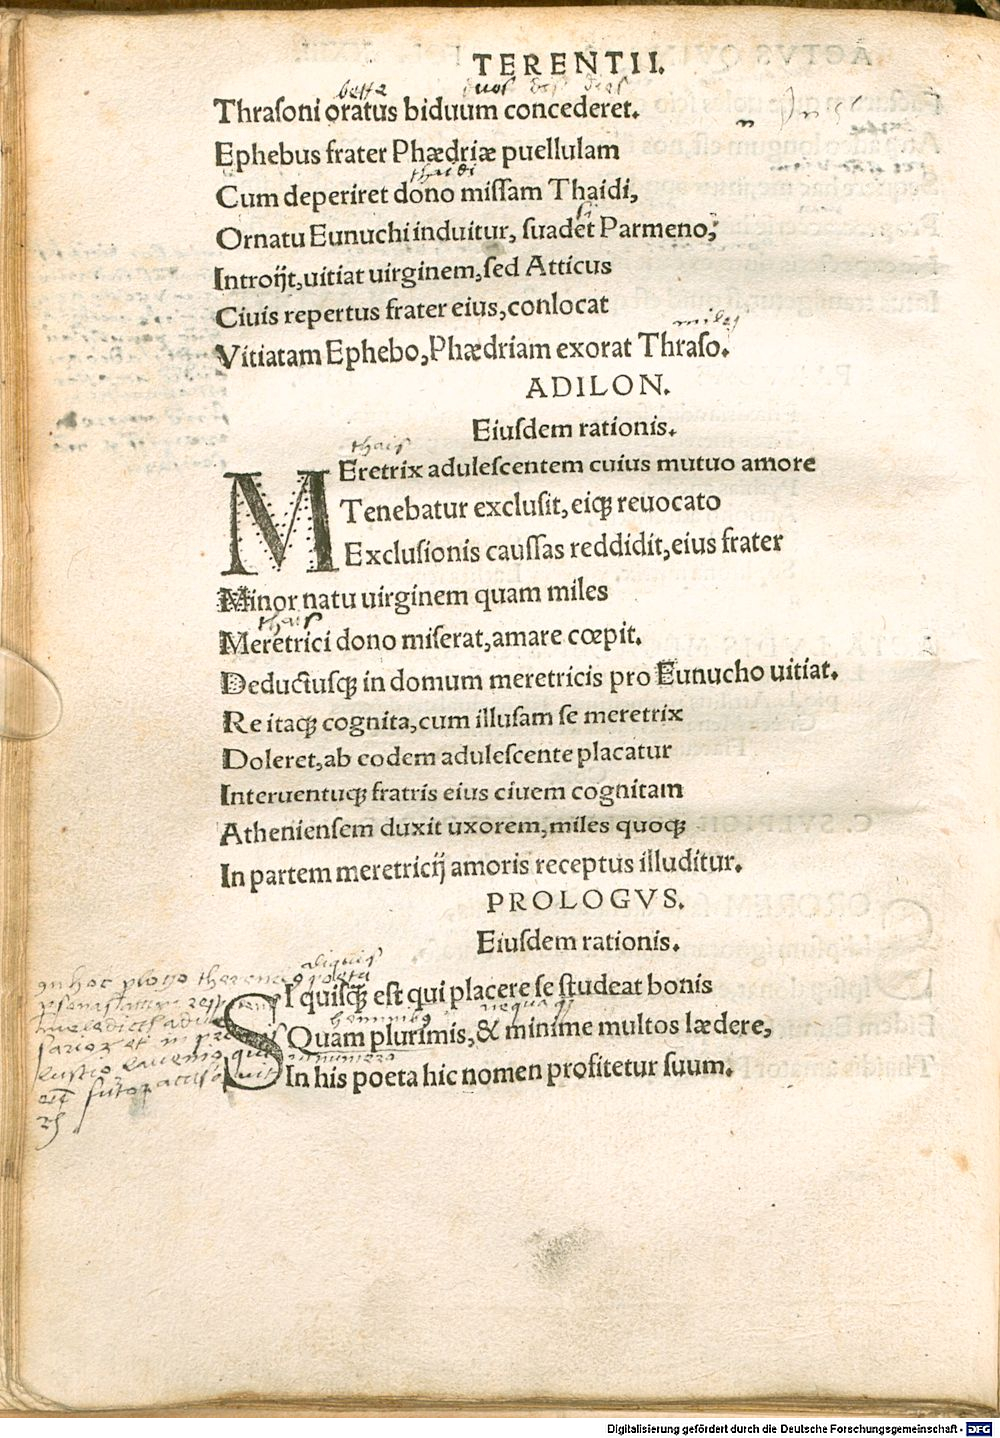 TERENTII.
duos dies
Thraſoni oratus biduum concederet.
Ephebus frater Phædriæ puellulam
thaidi
Cum deperiret dono miſſam Thaidi,
Ornatu Eunuchi induitur, ſuadet Parmeno,
Introijt, uitiat uirginem, ſed Atticus
Ciuis repertus frater eius, conlocat
miles
Vitiatam Ephebo, Phædriam exorat Thraſo.
ADILON.
Eiuſdem rationis.
thais
MEretrix aduleſcentem cuius mutuo amore
Tenebatur excluſit, eiq; reuocato
Excluſionis cauſſas reddidit, eius frater
Minor natu uirginem quam miles
thais
Meretrici dono miſerat, amare cœpit.
Deductuſq; in domum meretricis pro Eunucho uitiat.
Re itaq; cognita, cum illuſam ſe meretrix
Doleret, ab eodem aduleſcente placatur
Interuentuq; fratris eius ciuem cognitam
Athenienſem duxit uxorem, miles quoq;
In partem meretricij amoris receptus illuditur.
PROLOGVS.
Eiuſdem rationis.
aliquis
SI quiſq; eſt qui placere ſe ſtudeat bonis
Quam plurimis, & minime multos lædere,
In his poeta hic nomen profitetur ſuum.
in hoc
Digitalisierung gefördert durch die Deutsche Forschungsgemeinschaft - DFG